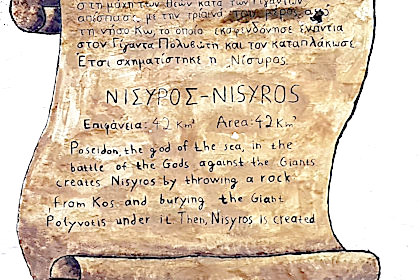 στη μάχη των Θεών κατά των Γιγάντων
απέσπασε, με την τρίαινά του, από
τη νήσο Κω, το οποίο εκσφενδόνησε ενάντια
στον Γίγαντα Πολυβώτη και τον καταπλάκωσε.
Έτσι σχηματίστηκε η Νίσυρος.
ΝΙΣΥΡΟΣ-NISYROS
Επιφάνεια: 42 Km² Area: 42 Km²
Poseidon, the god of the sea, in the
battle of the Gods against the Giants
creates Nisyros by throwing a rock
from Kos and burying the Giant
Polyvotis under it. Then, Nisyros is created